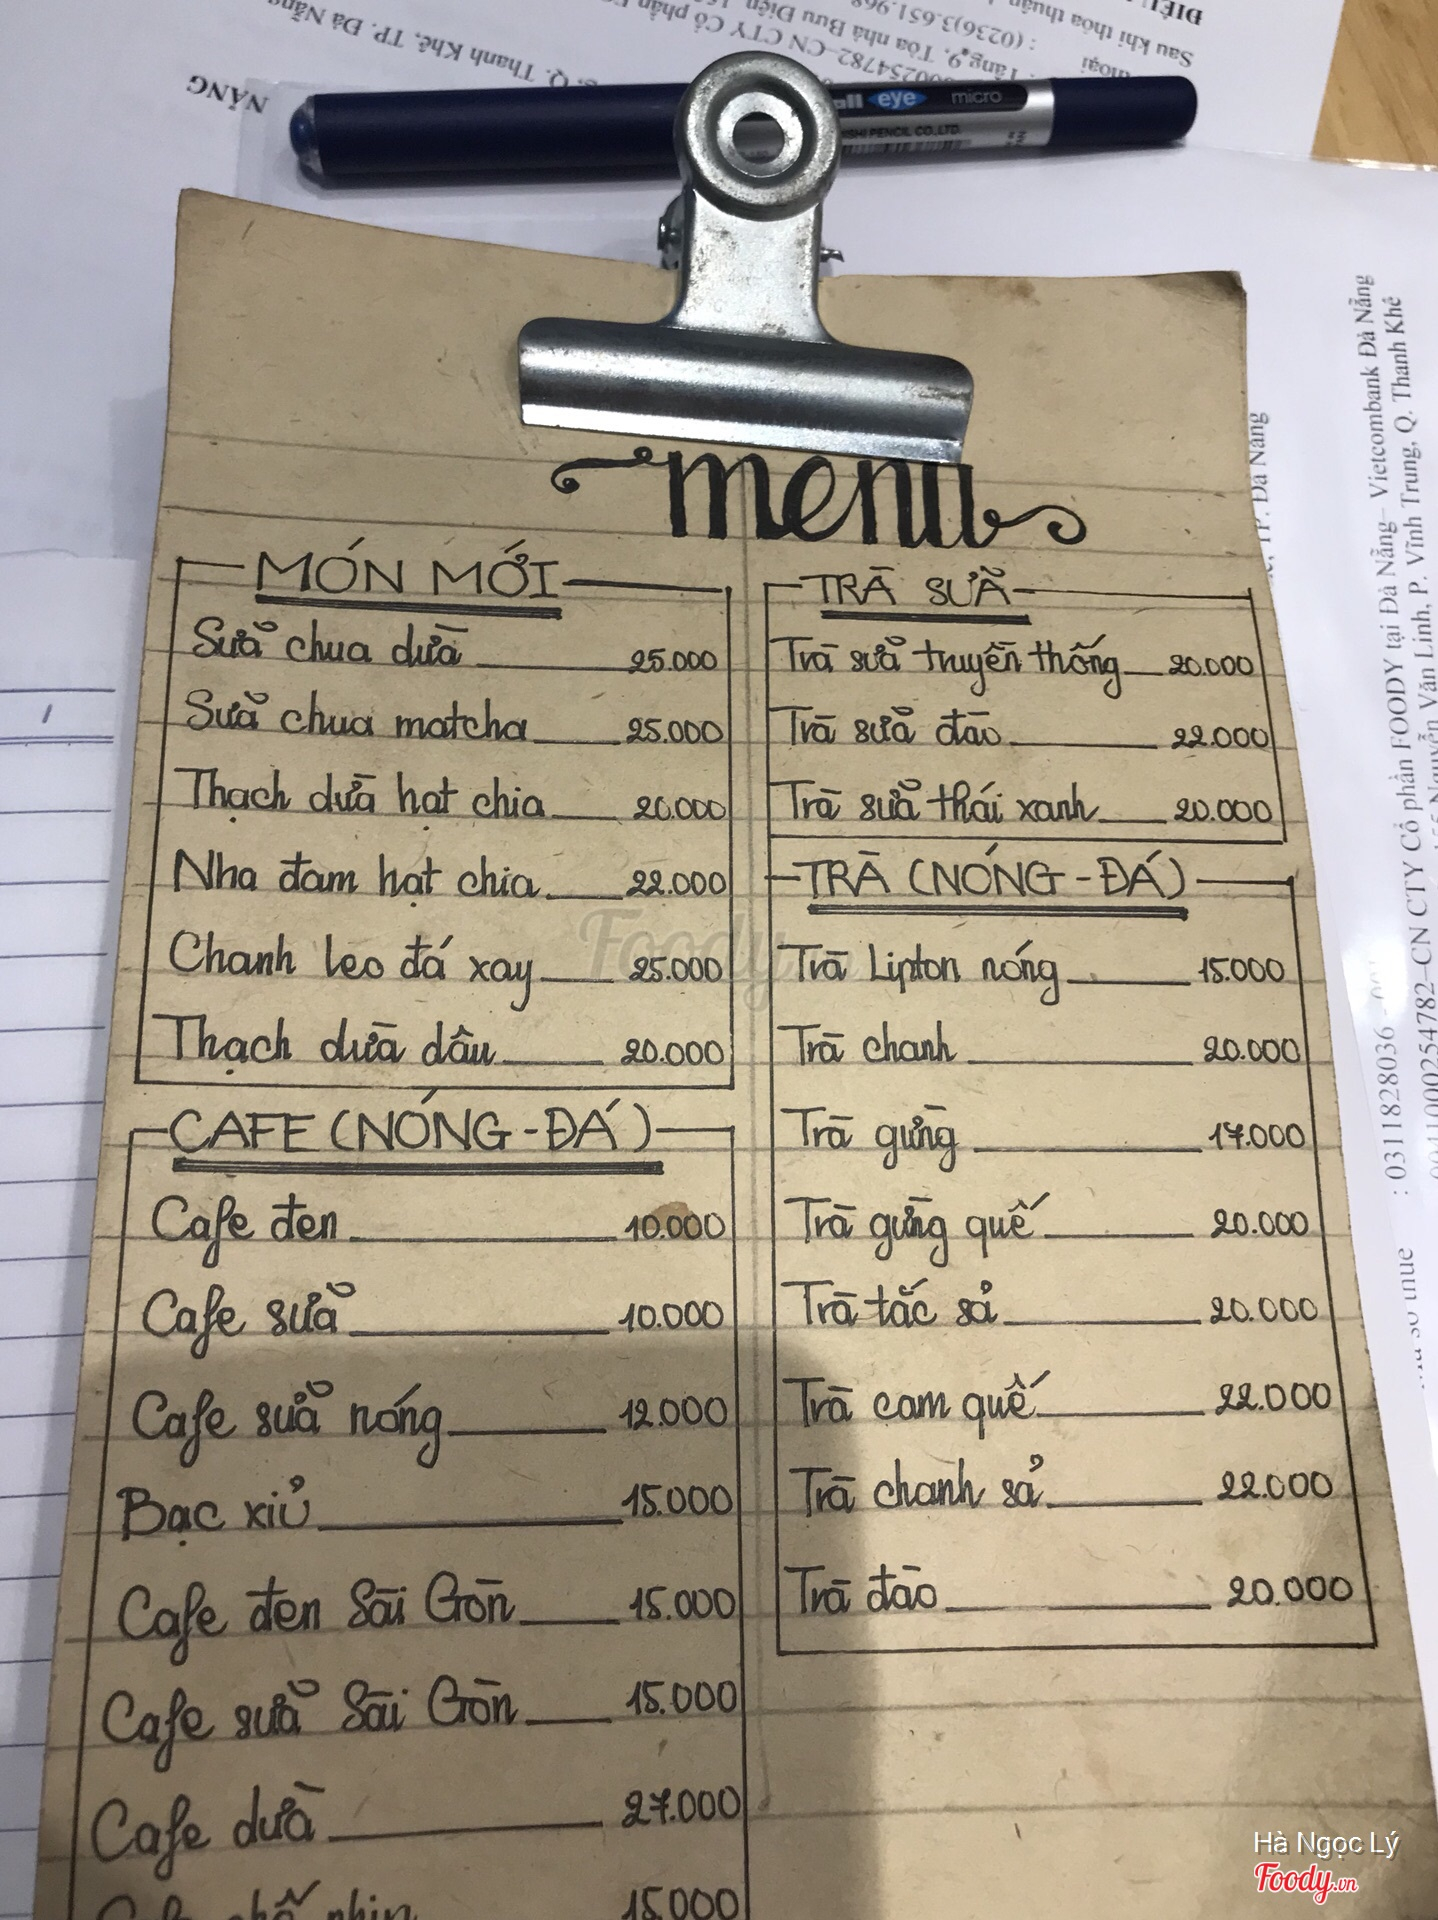 eye micro
ISHI PENCIL CO.,LTD.
NẴNG
menu
MÓN MỚI
Sữa chua dừa 25.000
Sữa chua matcha 25.000
Thạch dừa hạt chia 20.000
Nha đam hạt chia 22.000
Chanh leo đá xay 25.000
Thạch dừa dâu 20.000
CAFE (NÓNG - ĐÁ)
Cafe đen 10.000
Cafe sữa 10.000
Cafe sữa nóng 12.000
Bạc xỉu 15.000
Cafe đen Sài Gòn 15.000
Cafe sữa Sài Gòn 15.000
Cafe dừa 27.000
15.000
TRÀ SỮA
Trà sữa truyền thống 20.000
Trà sữa đào 22.000
Trà sữa thái xanh 20.000
TRÀ (NÓNG - ĐÁ)
Trà Lipton nóng 15.000
Trà chanh 20.000
Trà gừng 17.000
Trà gừng quế 20.000
Trà tắc sả 20.000
Trà cam quế 22.000
Trà chanh sả 22.000
Trà đào 20.000
TP. Đà Nẵng
CN CTY Cổ phần FOODY tại Đà Nẵng– Vietcombank Đà Nẵng
Nguyễn Văn Linh, P. Vĩnh Trung, Q. Thanh Khê
: 0311828036
0041000254782–CN CTY
Foody
Hà Ngọc Lý
Foody.vn